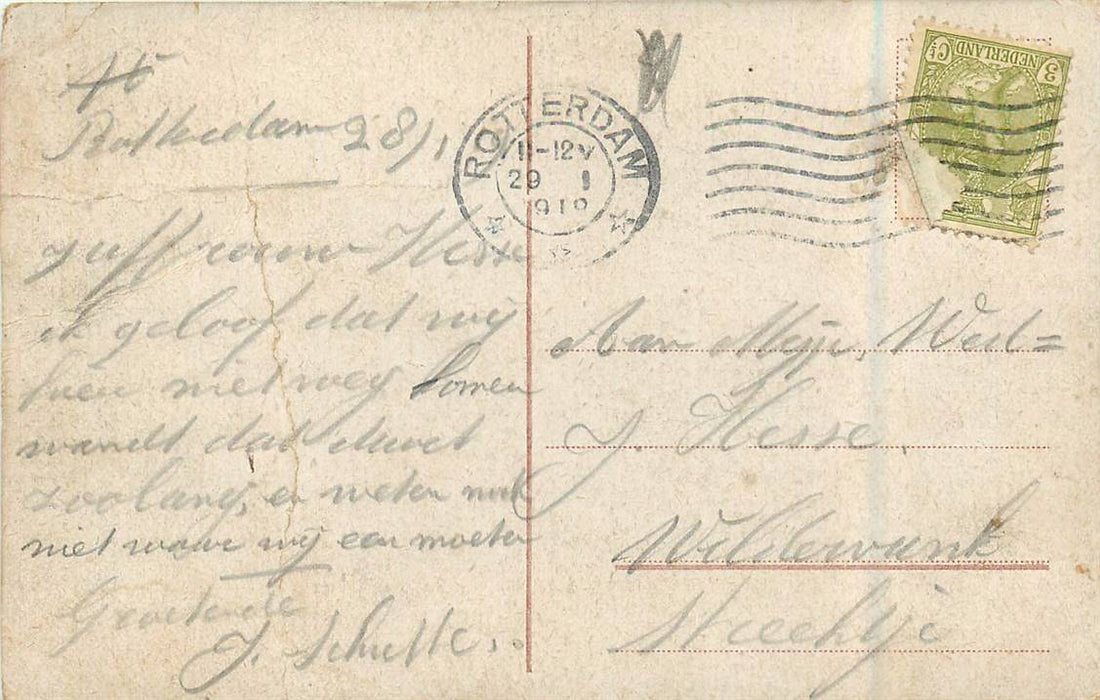 Rotterdam 28/1
Juffrouw Hesse
ik geloof dat wij
hier niet weg komen
wandt dat duurt
zoo lang, en weten nock
niet waar wij een moeten
Groetende
J. Schutte.
ROTTERDAM
11-12V
29 1
1918
NEDERLAND
3 Ct
Aan Mejr. West=
J. Hesse.
Wildervank
Streekje